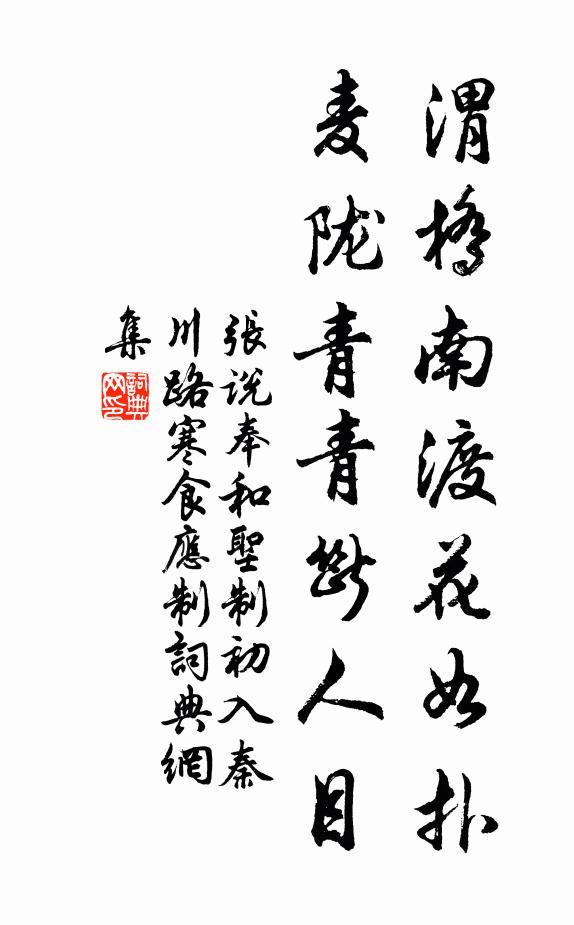 渭橋南渡花如扑
麦陇青青斷人目
張說奉和聖制初入秦
川路寒食應制詞典網
集
詞典网印